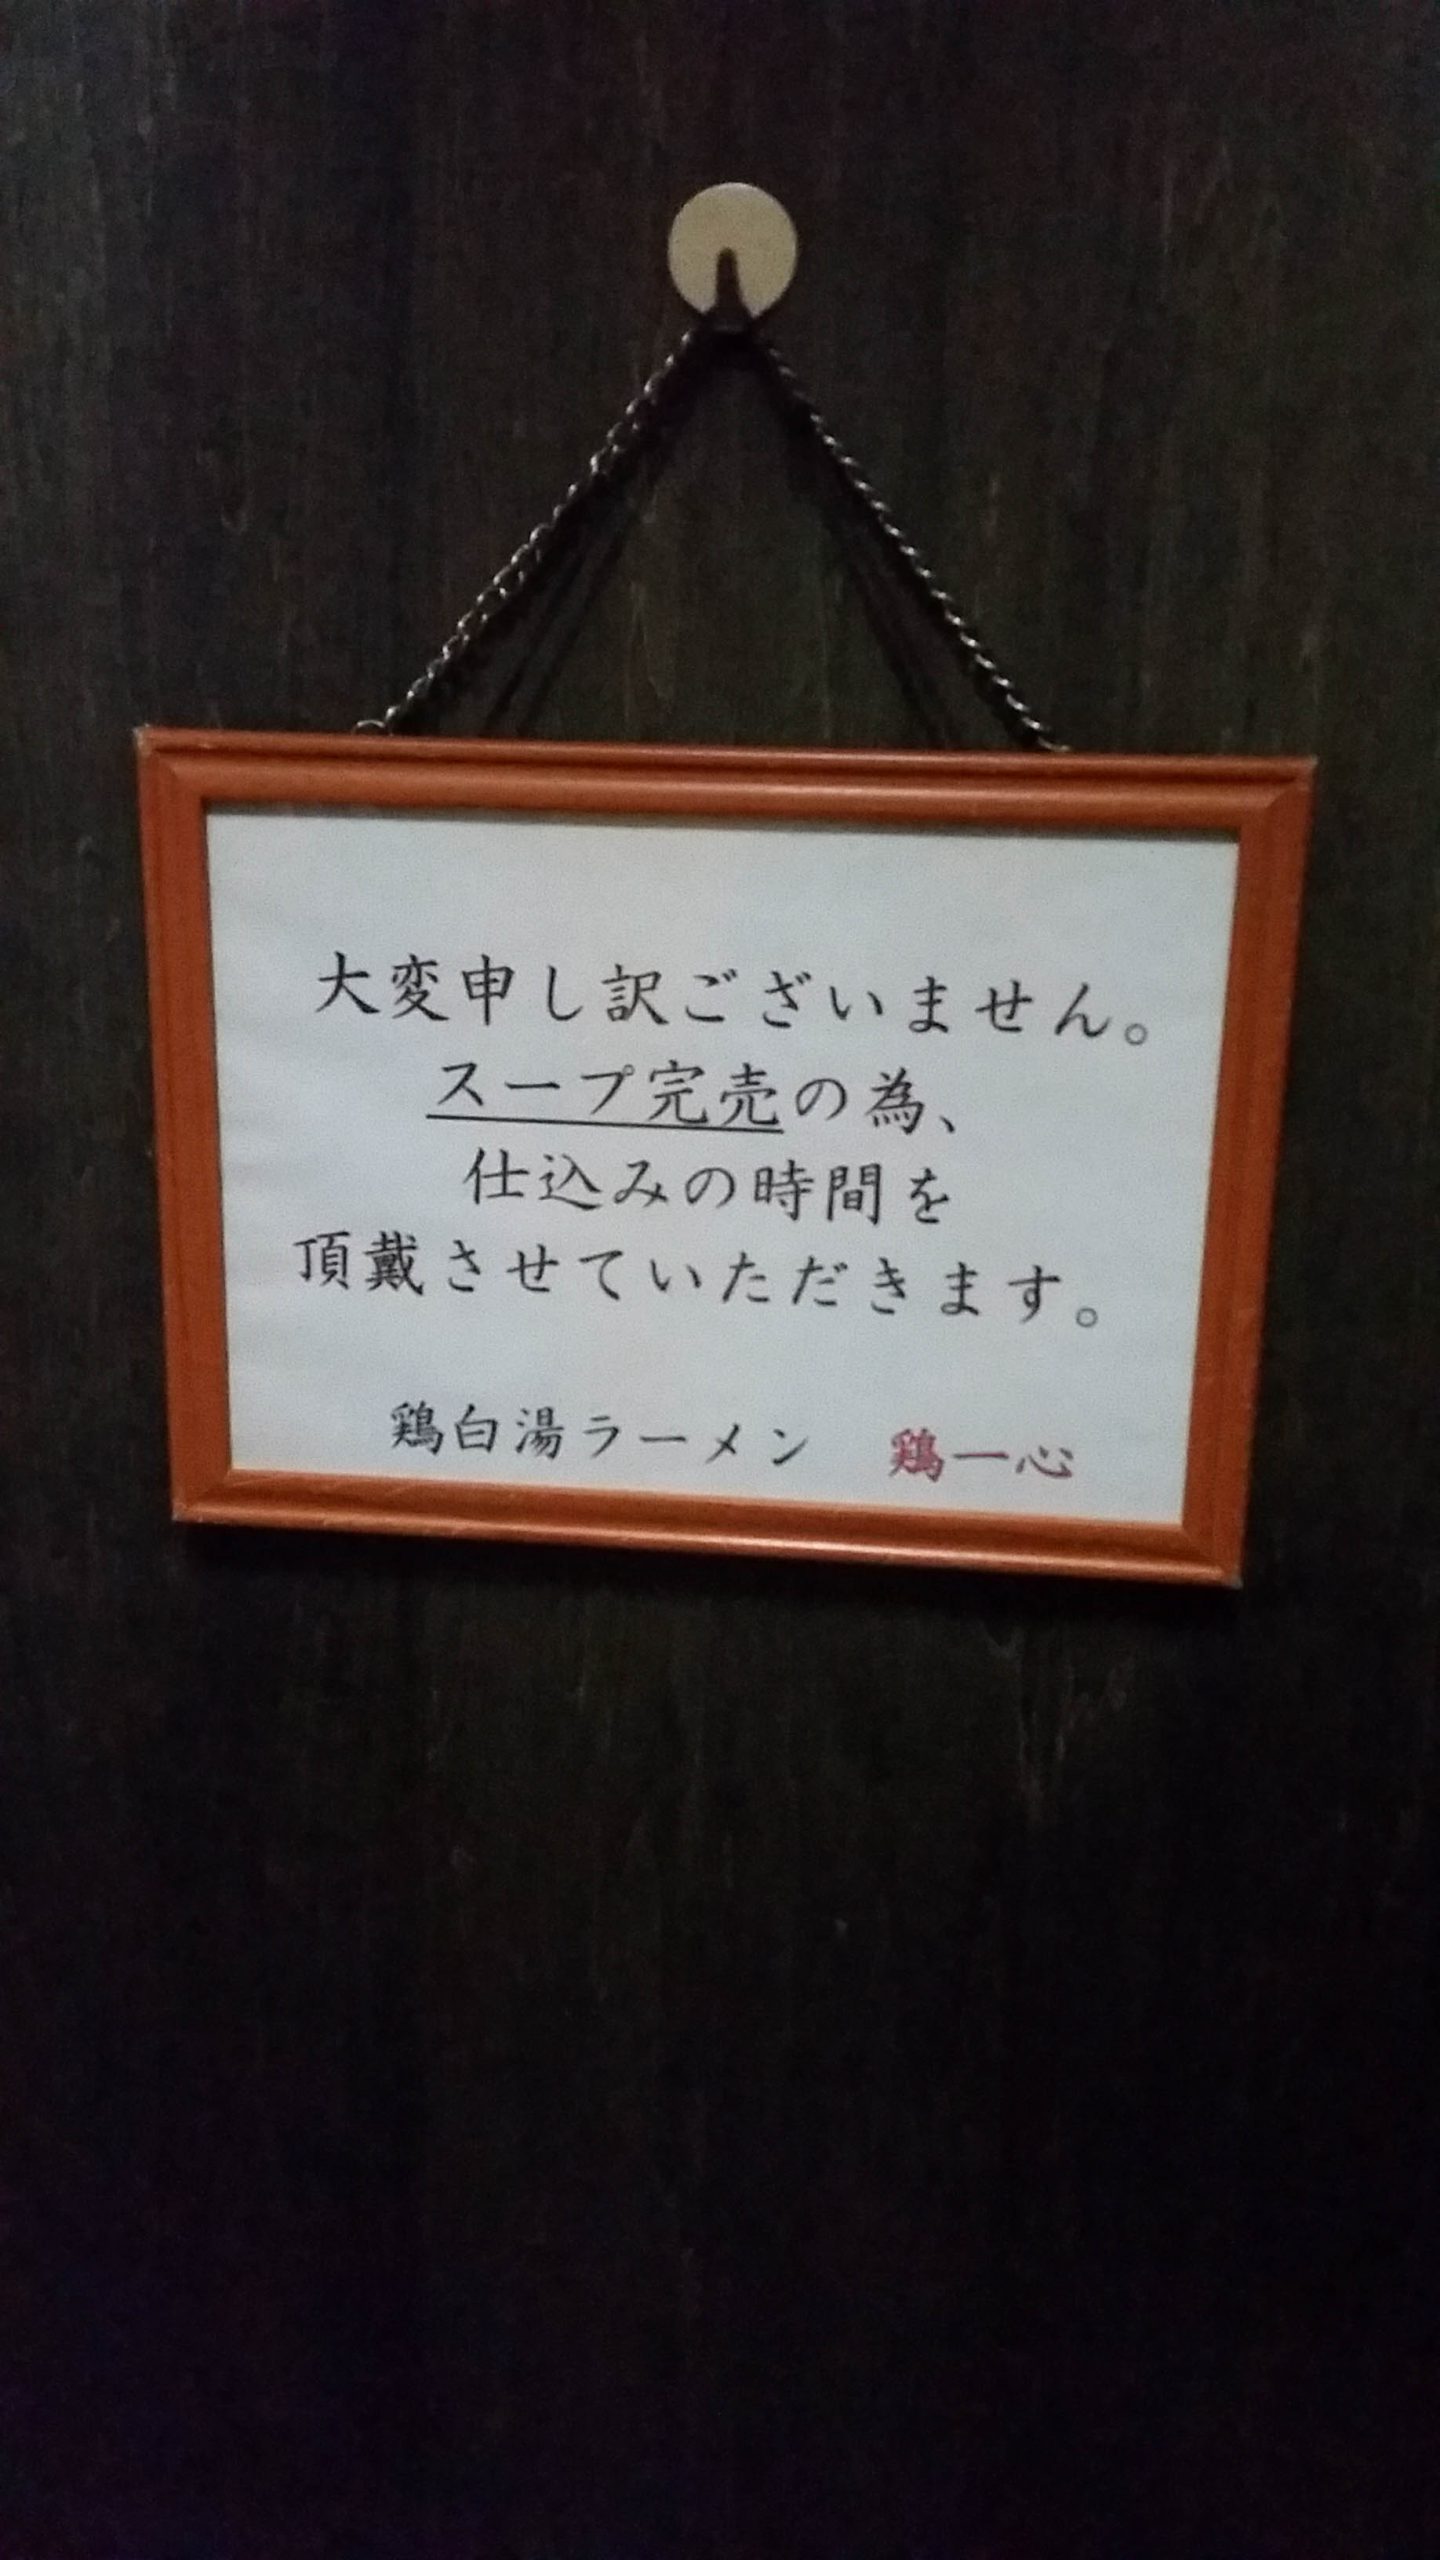 大変申し訳ございません。
スープ完売の為、
仕込みの時間を
頂戴させていただきます。
鶏白湯ラーメン 鶏一心